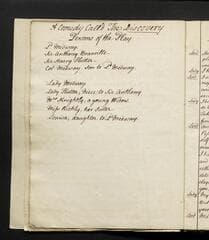 A Comedy Call'd The Discovery
Persons of the Play
Ld. Medway
Sir Anthony Branville
Sir Harry Flutter
Col. Medway Son to Ld. Medway
Lady Medway
Lady Flutter, Niece to Sir Anthony
Mrs. Knightly, a young Widow
Miss Richly, her Sister
Louisa, daughter to Ld. Medway